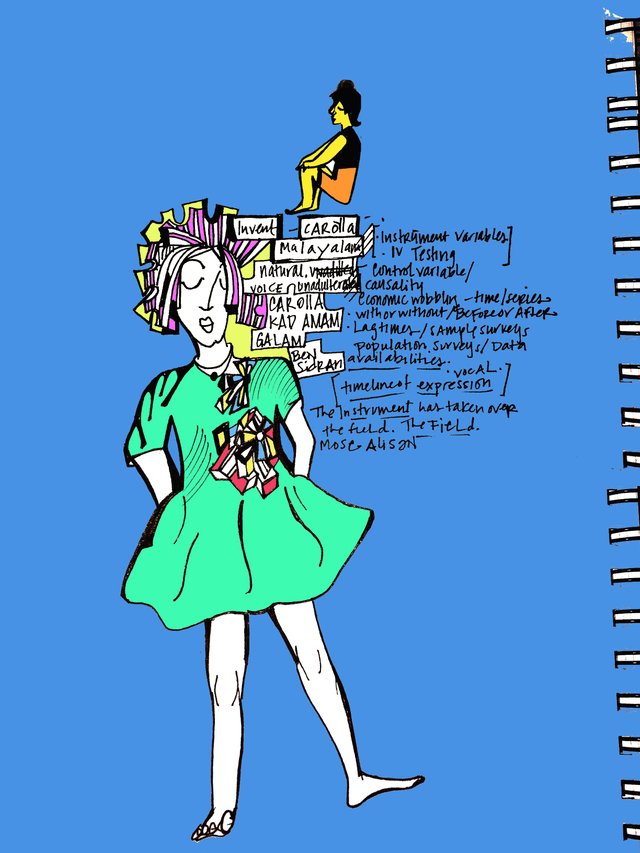 Invent CAROlla
Malayalam
natural,
voice unadulterated
CAROllA
KAD AMAM
GALAM
Ben
Sidran
• Instrument variables
• IV Testing
Control variable/
causality
economic wobblin – time/series
• with or without/BEFORE OR AFTER
• Lagtimes/SAMple surveys
population surveys/DATA
availabilities.
• vocal.
timeline of expression
The Instrument has taken over
the field. The Field.
MOSE ALISON